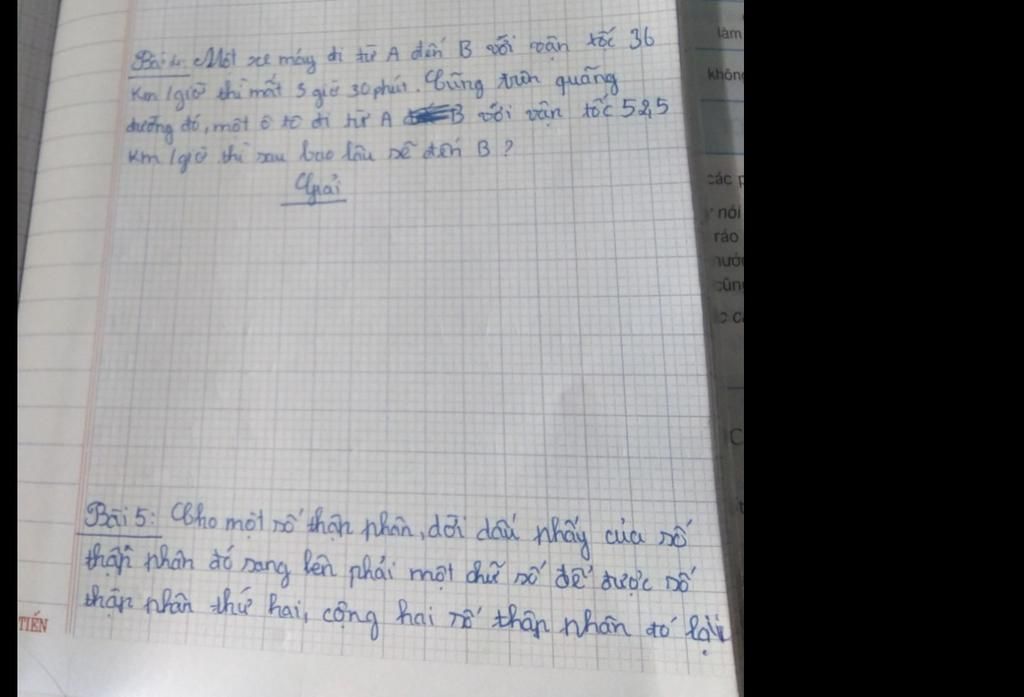 Bài 4: Một xe máy đi từ A đến B với vận tốc 36
km/giờ thì mất 3 giờ 30 phút. Cũng trên quãng
đường đó, một ô tô đi từ A B với vận tốc 52,5
km/giờ thì sau bao lâu sẽ đến B?
Giải
Bài 5: Cho một số thập phân, dời dấu phẩy của số
thập phân đó sang bên phải một chữ số để được số
thập phân thứ hai, cộng hai số thập phân đó lại
TIẾN
làm
không
các p
nói
ráo